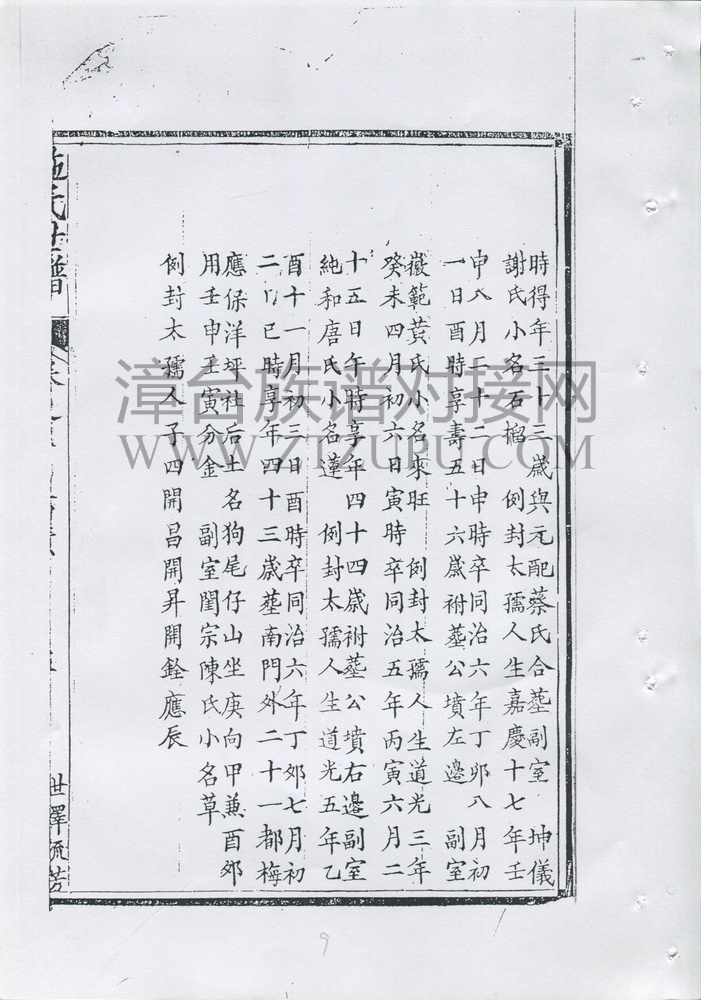 時得年三十三歲與元配蔡氏合塟副室　坤儀
謝氏小名石榴　例封太孺人生嘉慶十七年壬
申八月二十二日申時卒同治六年丁卯八月初
一日酉時享壽五十六歲祔塟公墳左邊　副室
徽範黃氏小名來旺　例封太孺人生道光三年
癸未四月初六日寅時卒同治五年丙寅六月二
十五日午時享年四十四歲祔塟公墳右邊副室
純和唐氏小名蓮　例封太孺人生道光五年乙
酉十一月初三日酉時卒同治六年丁卯七月初
二日巳時享年四十三歲塟南門外二十一都梅
應保洋坪社后土名狗尾仔山坐庚向甲兼酉卯
用壬申壬寅分金　副室閨宗陳氏小名草
例封太孺人子四開昌開昇開銓應辰
施氏世譜
世澤流芳
漳台族谱对接网
WWW.ZTZUPU.COM
9